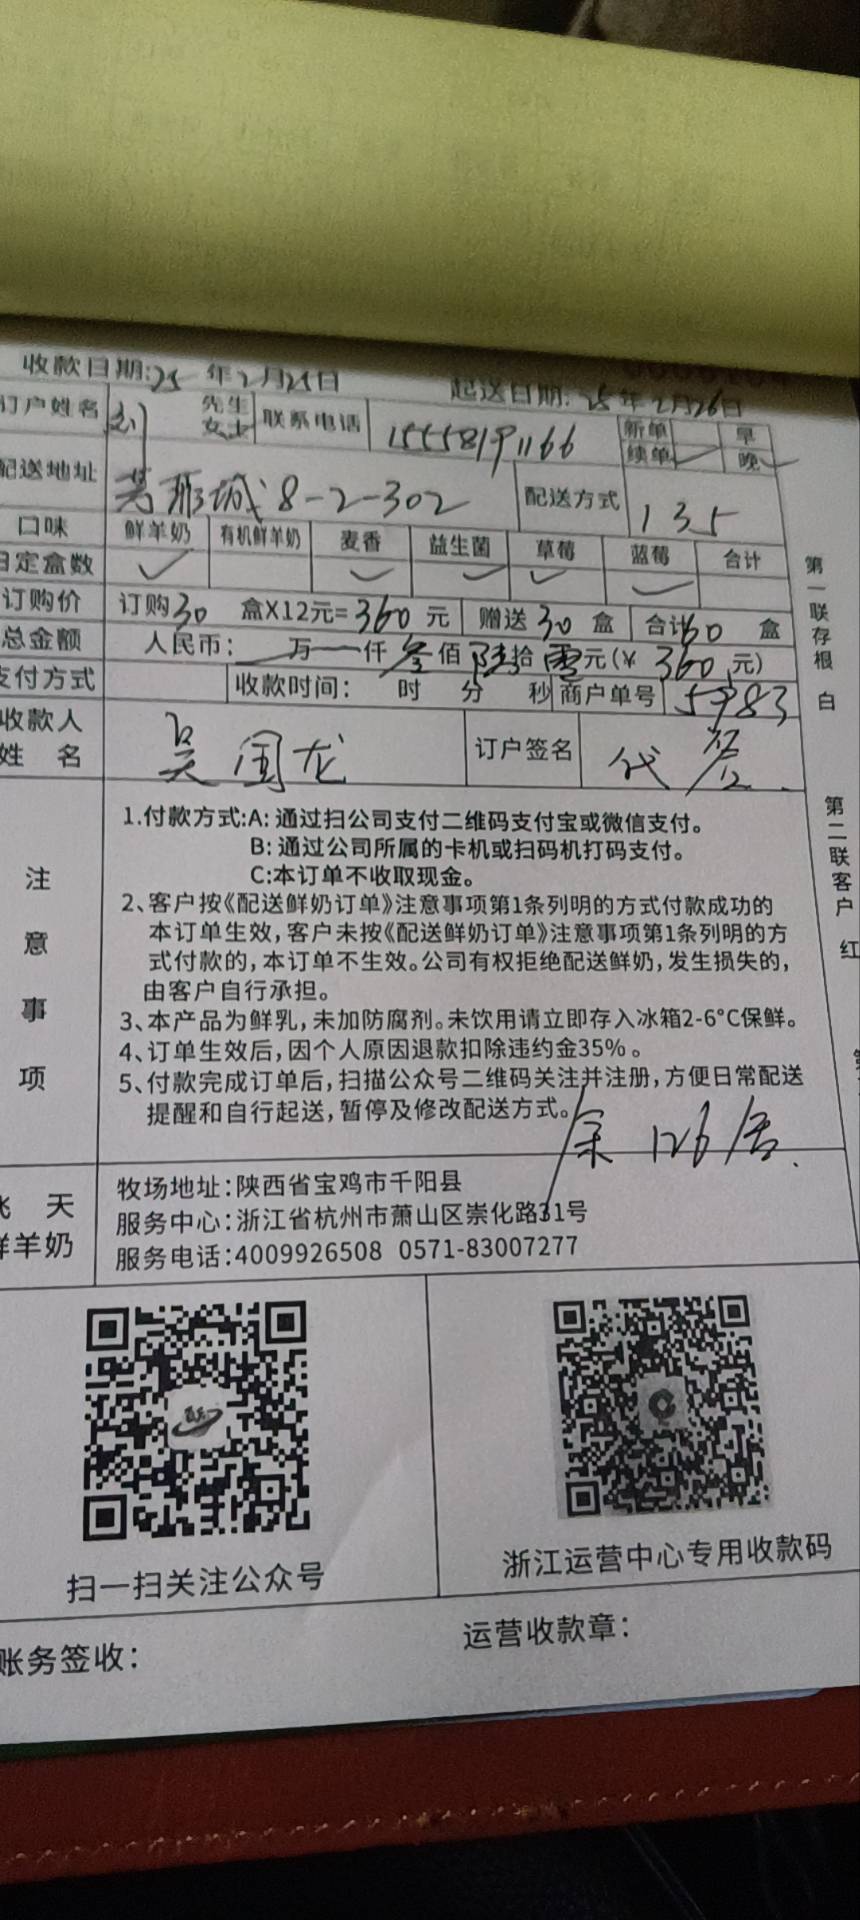 收款日期:25年2月25日 起送日期:25年2月26日
订户姓名 刘 先生 女士 联系电话 15558191166 新单 早
续单 ✓ 晚 ✓
配送地址 8-2-302 配送方式 135
口味 鲜羊奶 有机鲜羊奶 麦香 益生菌 草莓 蓝莓 合计
日定盒数 ✓ ✓ ✓ ✓ ✓
订购价 订购30盒X12元=360元 赠送30盒 合计60盒
总金额 人民币: 万 仟叁佰陆拾零元(¥360元)
支付方式 收款时间: 时 分 秒 商户单号 5983
收款人姓名 吴国龙 订户签名 代签
注意事项
1.付款方式:A:通过扫公司支付二维码支付宝或微信支付。
B:通过公司所属的卡机或扫码机打码支付。
C:本订单不收取现金。
2、客户按《配送鲜奶订单》注意事项第1条列明的方式付款成功的
本订单生效,客户未按《配送鲜奶订单》注意事项第1条列明的方
式付款的,本订单不生效。公司有权拒绝配送鲜奶,发生损失的,
由客户自行承担。
3、本产品为鲜乳,未加防腐剂。未饮用请立即存入冰箱2-6°C保鲜。
4、订单生效后,因个人原因退款扣除违约金35%。
5、付款完成订单后,扫描公众号二维码关注并注册,方便日常配送
提醒和自行起送,暂停及修改配送方式。
余126
飞天
鲜羊奶
牧场地址:陕西省宝鸡市千阳县
服务中心:浙江省杭州市萧山区崇化路31号
服务电话:4009926508 0571-83007277
扫一扫关注公众号
浙江运营中心专用收款码
账务签收:
运营收款章:
第一联存根 白
第二联客户 红